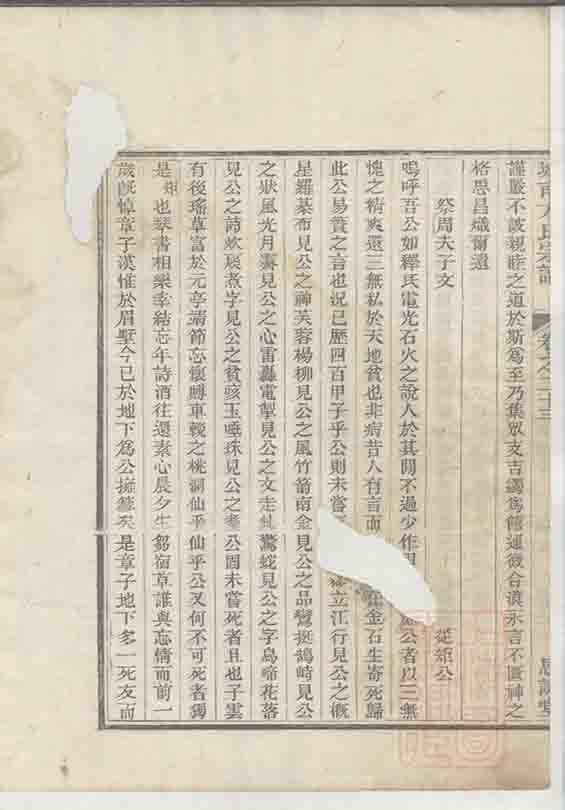 謹嚴不談親睦之道於斯爲至乃集眾支吉蠲爲饎連微合漠永言不匱神之
格思昌熾爾還
祭周夫子文
楚
公
嗚呼吾公如釋氏電光石火之說人於其間不過少作
公者以三無
愧之精爽還三無私於天地貧也非病昔人有言而
金石生寄死歸
此公易簀之言也況已歷四百甲子乎公則未嘗
立江行見公之概
星羅棊布見公之神芙蓉楊柳見公之風竹箭南金見公之品鸞挺鵠峙見公
之狀風光月霽見公之心雷轟電掣見公之文走
驚蛇見公之字鳥啼花落
見公之詩炊
煮字見公之貧咳玉唾珠見公之
公固未嘗死者且也子雲
有後瑤草富於元亭靖節忘懷賻車輓之桃源仙乎仙乎公又何不可死者獨
是
也琴書相樂幸結忘年詩酒往還素心晨夕生芻宿草誰與忘情而前一
歲既悼章子漢惟於眉墅今已於地下爲公擁篲矣是章子地下多一死友而